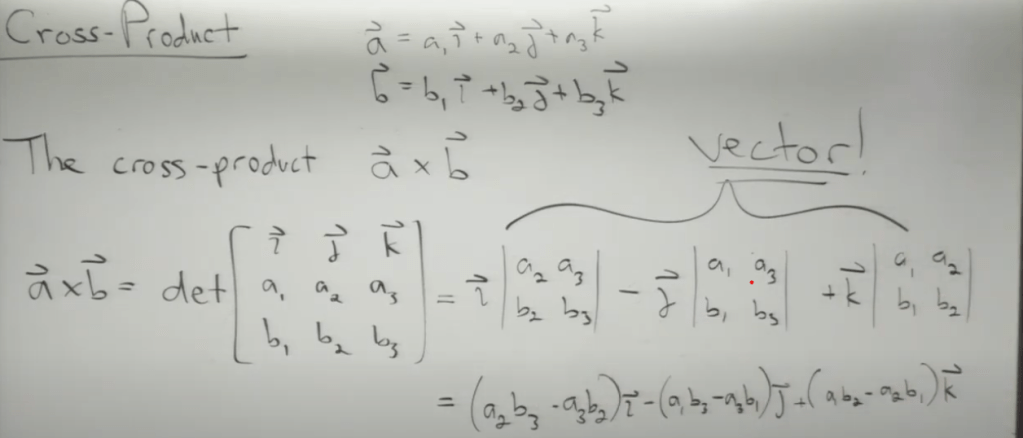 Cross-Product
a⃗ = a₁i⃗ + a₂j⃗ + a₃k⃗
b⃗ = b₁i⃗ + b₂j⃗ + b₃k⃗
The cross-product a⃗ × b⃗
vector!
a⃗ × b⃗ = det [ i⃗ j⃗ k⃗ ; a₁ a₂ a₃ ; b₁ b₂ b₃ ] = i⃗ | a₂ a₃ ; b₂ b₃ | − j⃗ | a₁ a₃ ; b₁ b₃ | + k⃗ | a₁ a₂ ; b₁ b₂ |
= (a₂b₃ - a₃b₂)i⃗ - (a₁b₃ - a₃b₁)j⃗ + (a₁b₂ - a₂b₁)k⃗